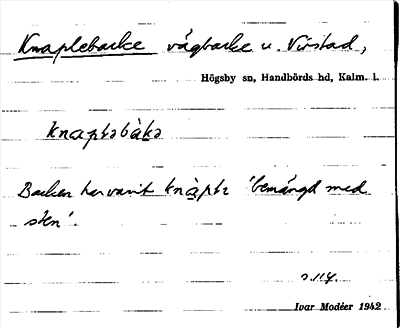 Knaplebacke vägbacke u. Virstad,
Högsby sn, Handbörds hd, Kalm. l.
knaplabaka
Backen har varit knapli 'bemängd med
sten'.
s. 114.
Ivar Modéer 1942